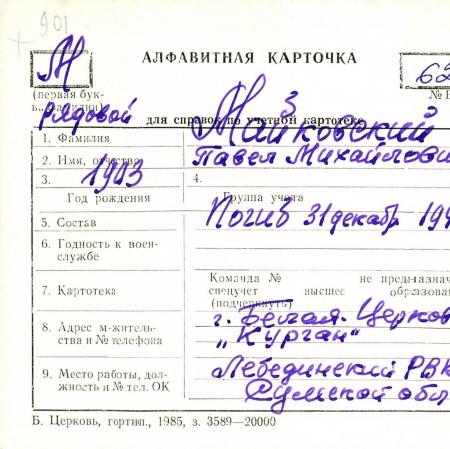 901
АЛФАВИТНАЯ КАРТОЧКА
М
62
(первая бук-
№
рядовой
для справок по учетной картотеке
1. Фамилия Майковский
2. Имя, отчество Павел Михайлови
3. 1903 4.
Год рождения Группа учета
5. Состав Погиб 31 декабр 194
6. Годность к воен-
службе
Команда № не предназнач
7. Картотека спецучет высшее образова
(подчеркнуть)
г. Белая-Церков
8. Адрес м-житель-
ства и № телефона „Курган"
9. Место работы, дол-
жность и № тел. ОК Лебединский РВК
Сумской обл
Б. Церковь, гортип., 1985, з. 3589—20000